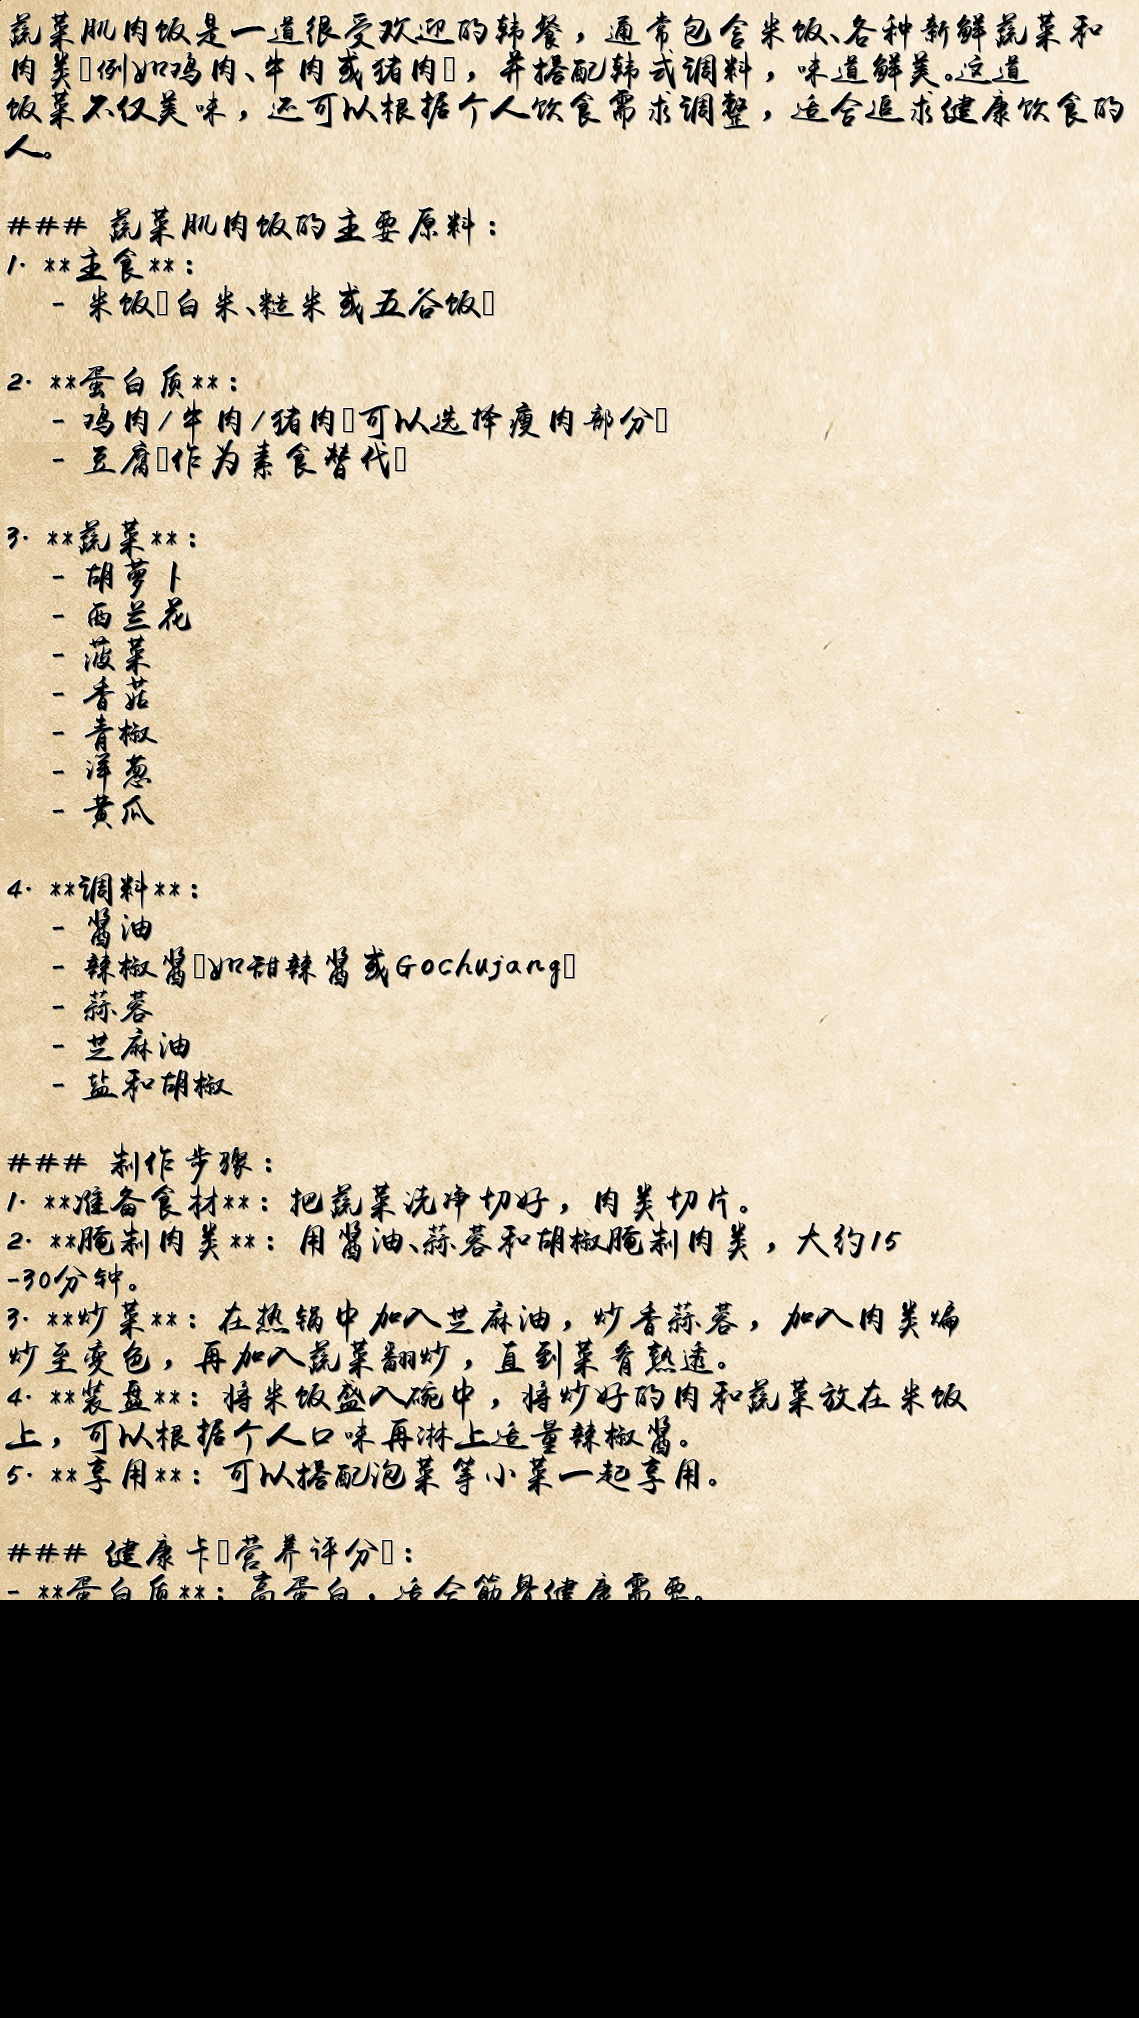 蔬菜肌肉饭是一道很受欢迎的韩餐，通常包含米饭、各种新鲜蔬菜和
肉类▯例如鸡肉、牛肉或猪肉▯，并搭配韩式调料，味道鲜美。这道
饭菜不仅美味，还可以根据个人饮食需求调整，适合追求健康饮食的
人。

### 蔬菜肌肉饭的主要原料：
1. **主食**：
- 米饭▯白米、糙米或五谷饭▯

2. **蛋白质**：
- 鸡肉/牛肉/猪肉▯可以选择瘦肉部分▯
- 豆腐▯作为素食替代▯

3. **蔬菜**：
- 胡萝卜
- 西兰花
- 菠菜
- 香菇
- 青椒
- 洋葱
- 黄瓜

4. **调料**：
- 酱油
- 辣椒酱▯如甜辣酱或Gochujang▯
- 蒜蓉
- 芝麻油
- 盐和胡椒

### 制作步骤：
1. **准备食材**：把蔬菜洗净切好，肉类切片。
2. **腌制肉类**：用酱油、蒜蓉和胡椒腌制肉类，大约15
-30分钟。
3. **炒菜**：在热锅中加入芝麻油，炒香蒜蓉，加入肉类煸
炒至变色，再加入蔬菜翻炒，直到菜肴熟透。
4. **装盘**：将米饭盛入碗中，将炒好的肉和蔬菜放在米饭
上，可以根据个人口味再淋上适量辣椒酱。
5. **享用**：可以搭配泡菜等小菜一起享用。

### 健康卡▯营养评分▯：
- **蛋白质**：高蛋白，适合筋骨健康需要。